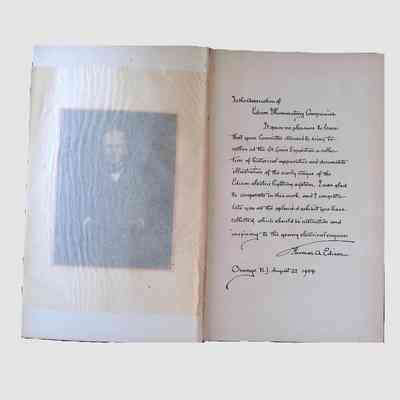 To the Association of
Edison Illuminating Companies
It gave me pleasure to learn
that your Committee desired to bring to-
gether at the St. Louis Exposition a collec-
tion of historical apparatus and documents
illustrative of the early stages of the
Edison electric lighting system, I was glad
to cooperate in this work, and I congratu-
late you on the splendid exhibit you have
collected, which should be instructive and
"inspiring" to the young electrical engineer
Thomas A. Edison
Orange N.J. August 22 1904